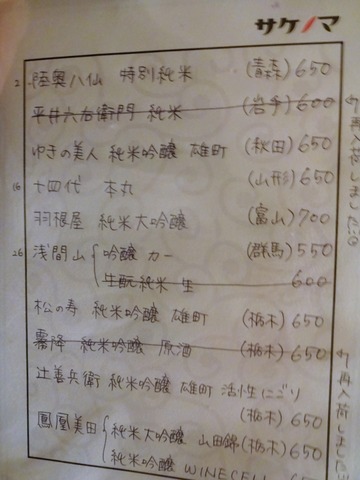 サケノマ
2 陸奥八仙 特別純米 (青森) 650
平井六右衛門 純米 (岩手) 600
ゆきの美人 純米吟醸 雄町 (秋田) 650
16 十四代 本丸 (山形) 650
羽根屋 純米大吟醸 (富山) 700
26 浅間山 吟醸 カー (群馬) 550
生酛純米 生 600
松の寿 純米吟醸 雄町 (栃木) 650
霧降 純米吟醸 原酒 (栃木) 650
辻善兵衛 純米吟醸 雄町 活性にごり
(栃木) 650
鳳凰美田 純米大吟醸 山田錦 (栃木) 650
純米吟醸 WINECELL 650
再入荷しました
再入荷しました